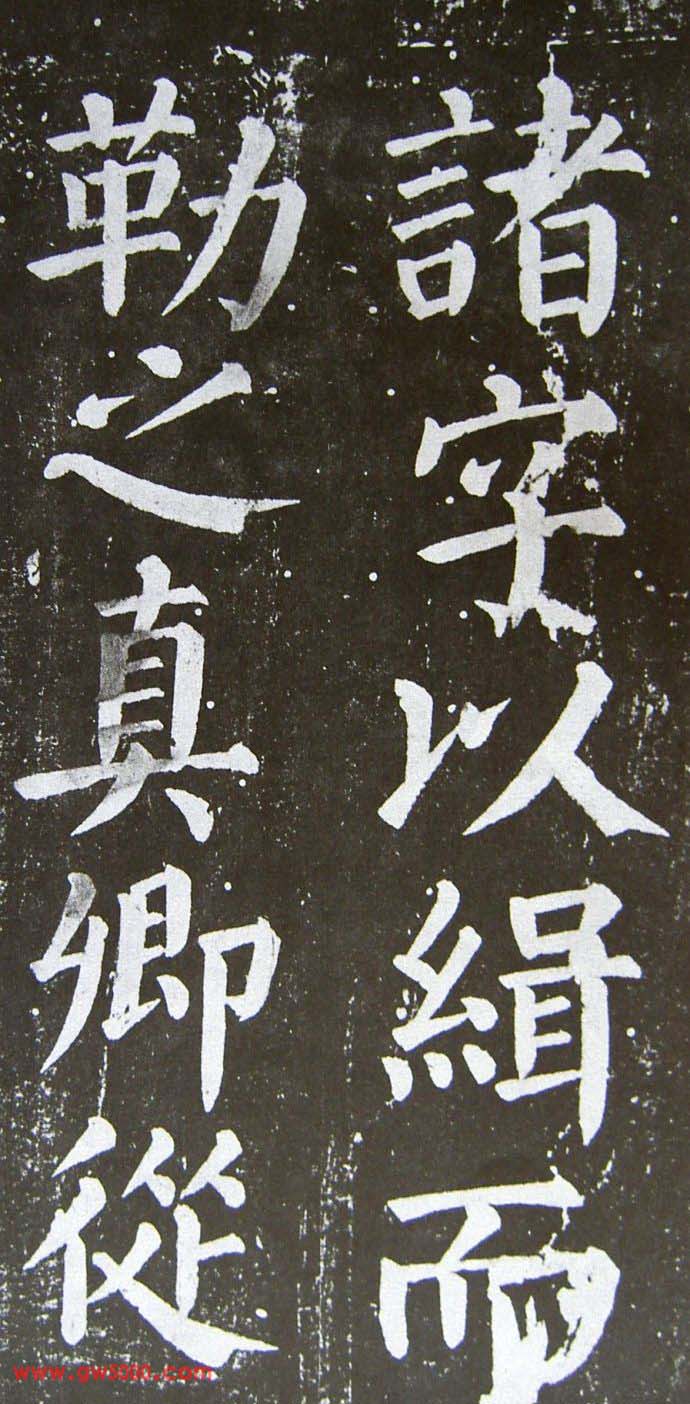 諸以緝而
勒之真卿從
www.gw5000.com